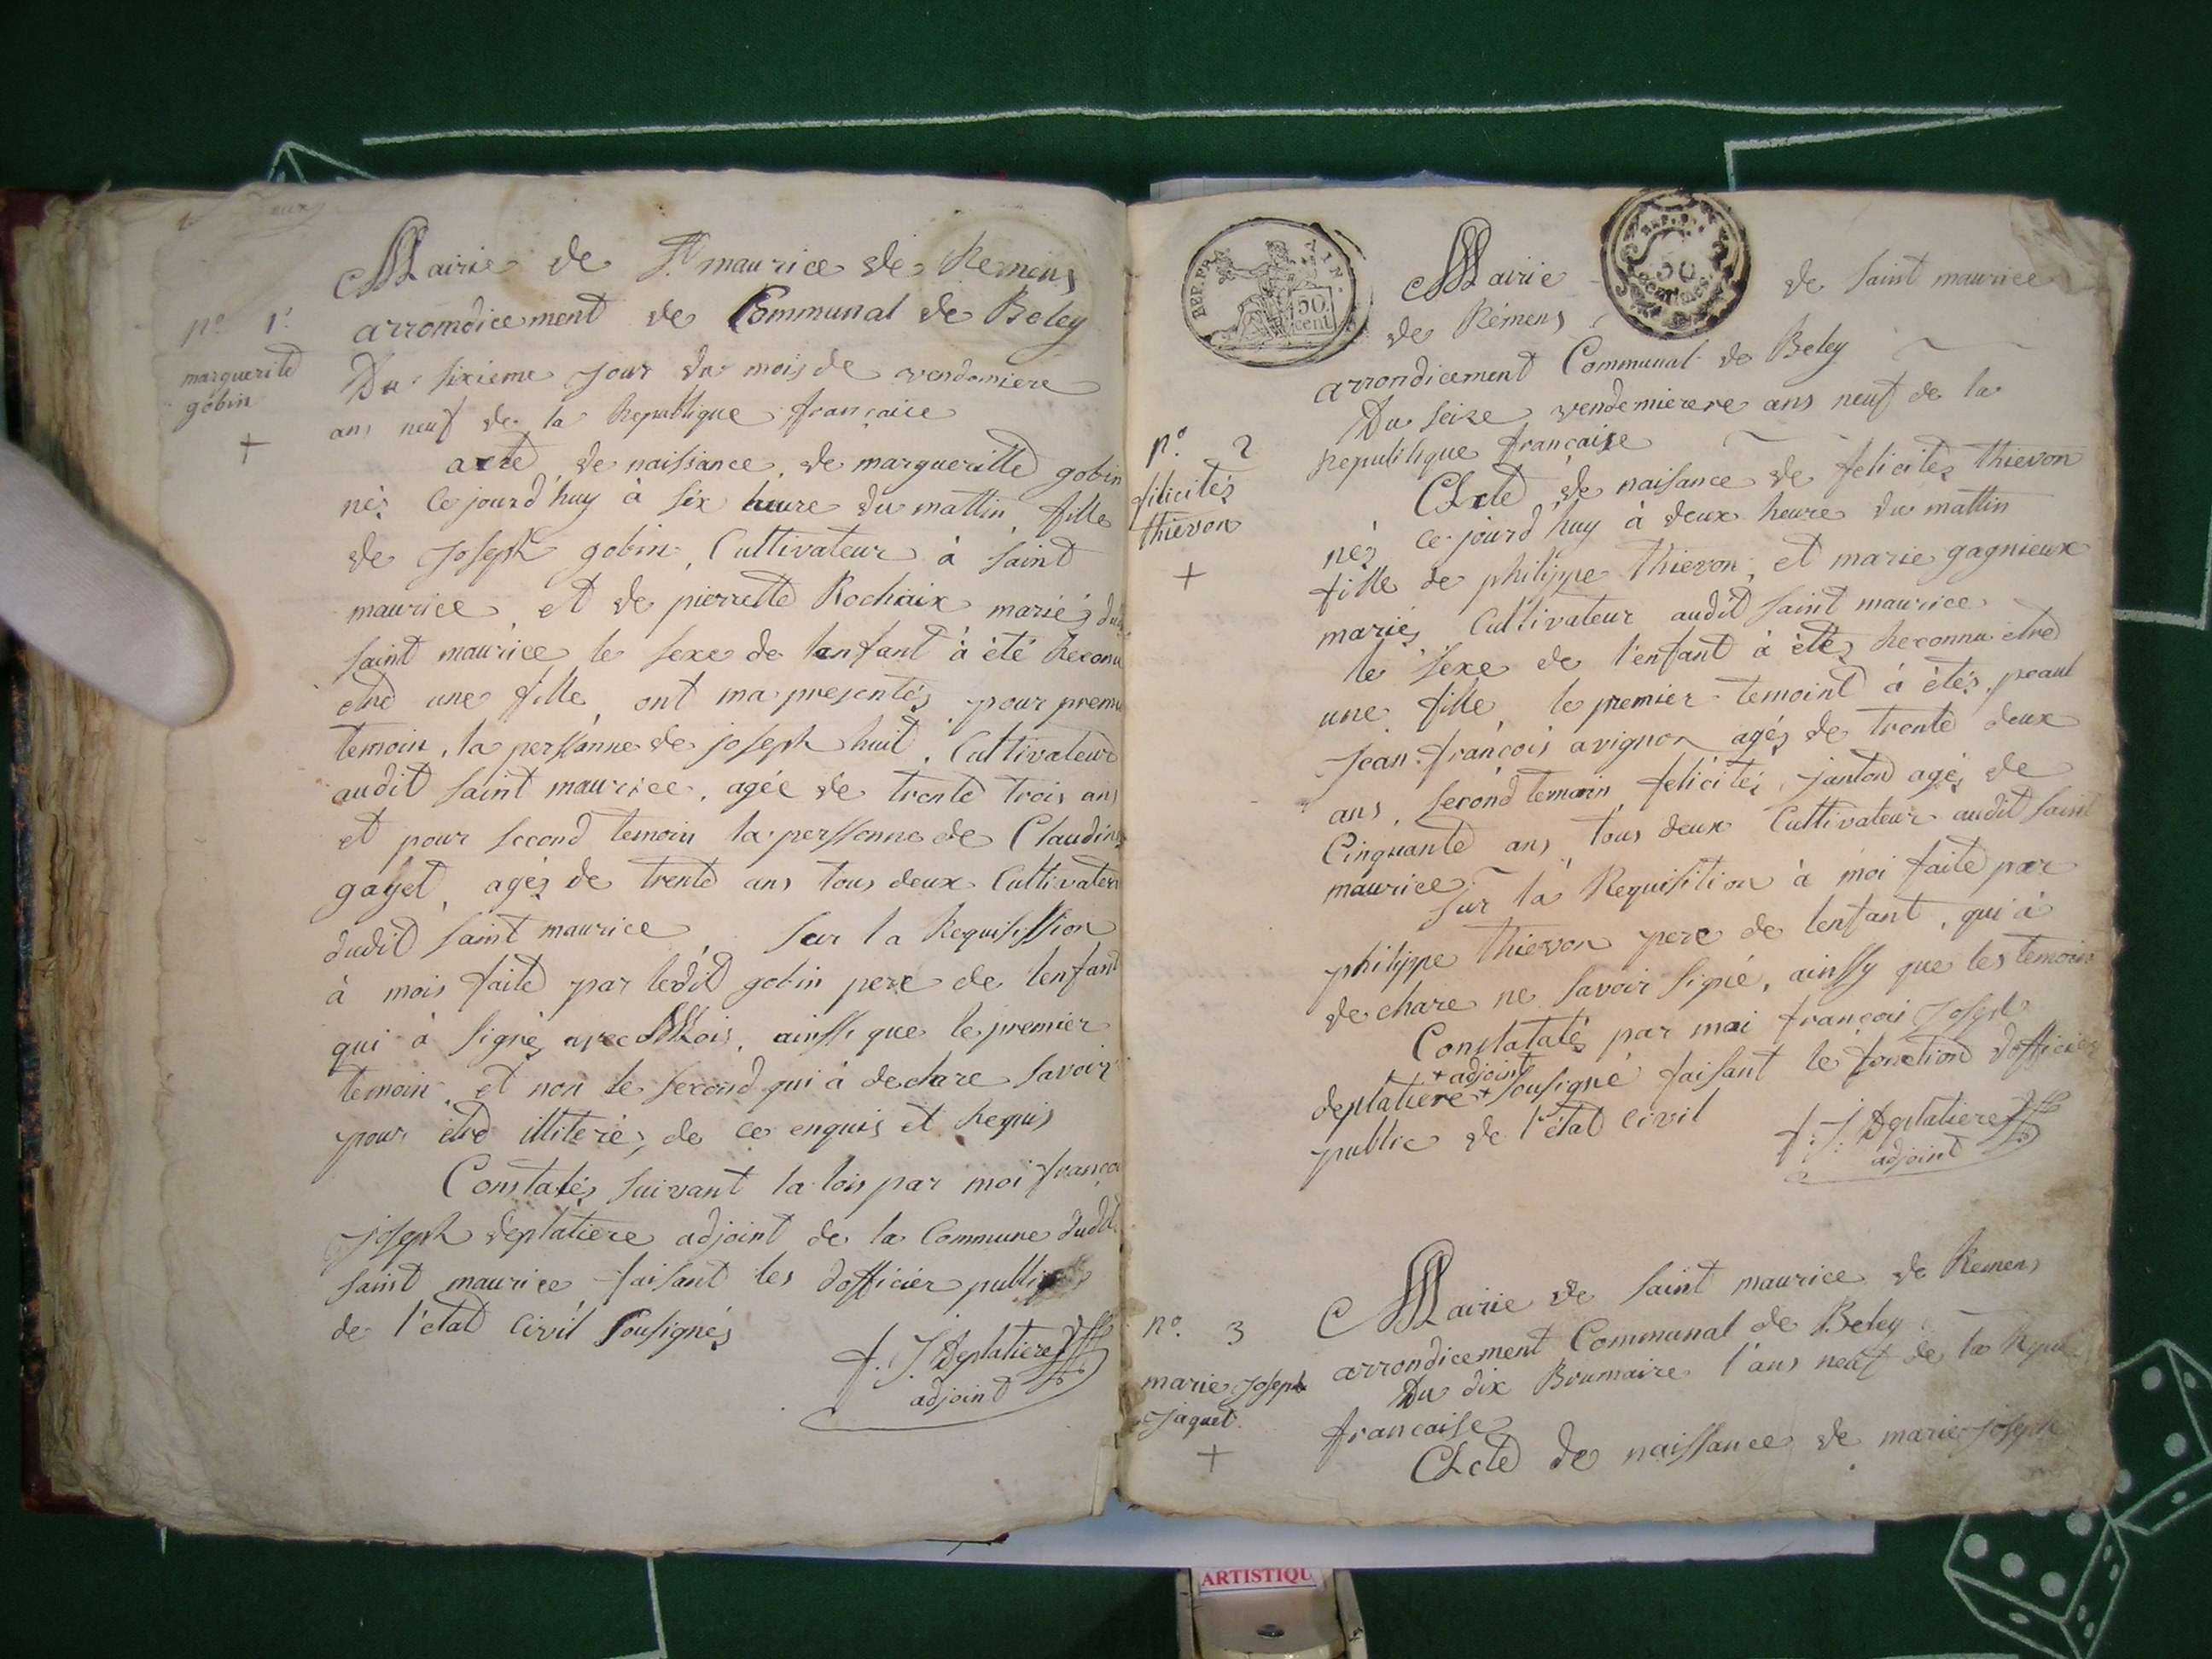 Mairie de St maurice de Remens
arrondicement de Communal de Beley
nº 1.
marguerite
gobin
+
Du sixieme jour du mois de vendemiere
ans neuf de la Republique française
acte de naissance de margueritte gobin
nés ce jourd'huy à six heure du mattin, fille
de joseph gobin, Cultivateur à saint
maurice, et de pierrette Rochaix mariés du
saint maurice le sexe de lenfant à été Reconu
etre une fille, ont ma presentés pour premi
temoin, la perssonne de joseph huit, Cultivateur
audit saint maurice, agée de trente trois ans
et pour second temoin la perssonne de Claudine
gayet, agés de trente ans tous deux Cultivateur
dudit saint maurice sur la Requisission
à mois faite par ledit gobin pere de lenfant
qui à signés avec Mois, ainssi que le premier
temoin, et non le second qui à declare savoir
pour etre illiterés, de ce enquis et Requis
Constatés suivant la lois par moi françoi
joseph deplatiere adjoint de la Commune dudit
saint maurice faisant les dofficier public
de l'état Civil sousignés
f. J. Deplatiere
adjoint
REP. FRA.
50
cent
REP. F.
50
centimes
Mairie de saint maurice
de Rémens
arrondicement Communal de Beley
Du seise vendemierere ans neuf de la
Republique française
nº. 2
filicités
thievon
+
Acte de naisance de felicités thievon
nés ce jourd'huy à deux heure du mattin
fille de philippe thievon, et marie gagnieux
mariés Cultivateur audit saint maurice
le sexe de l'enfant à étés Reconnu etre
une fille, le premier temoint à étés, praul
jean françois avignon agés de trente deux
ans, second temoin felicités, janton agés de
Cinquante ans, tous deux Cultivateur audit saint
maurice
sur la Requisition à moi faite par
philippe thievon pere de lenfant, qui à
de chare ne savoir signé, ainssy que les temoin
Constatatés par moi françois Joseph
+ adjoint
deplatiere + sousigné faisant le fonction dofficier
public de l'état Civil
f. J. Deplatiere
adjoint
nº. 3
marie joseph
jaquet.
+
Mairie de saint maurice de Remens
arrondicement Communal de Beley
Du dix Brumaire l'ans neuf de la Repu
francaise
Acte de naissance de marie joseph
ARTISTIQU